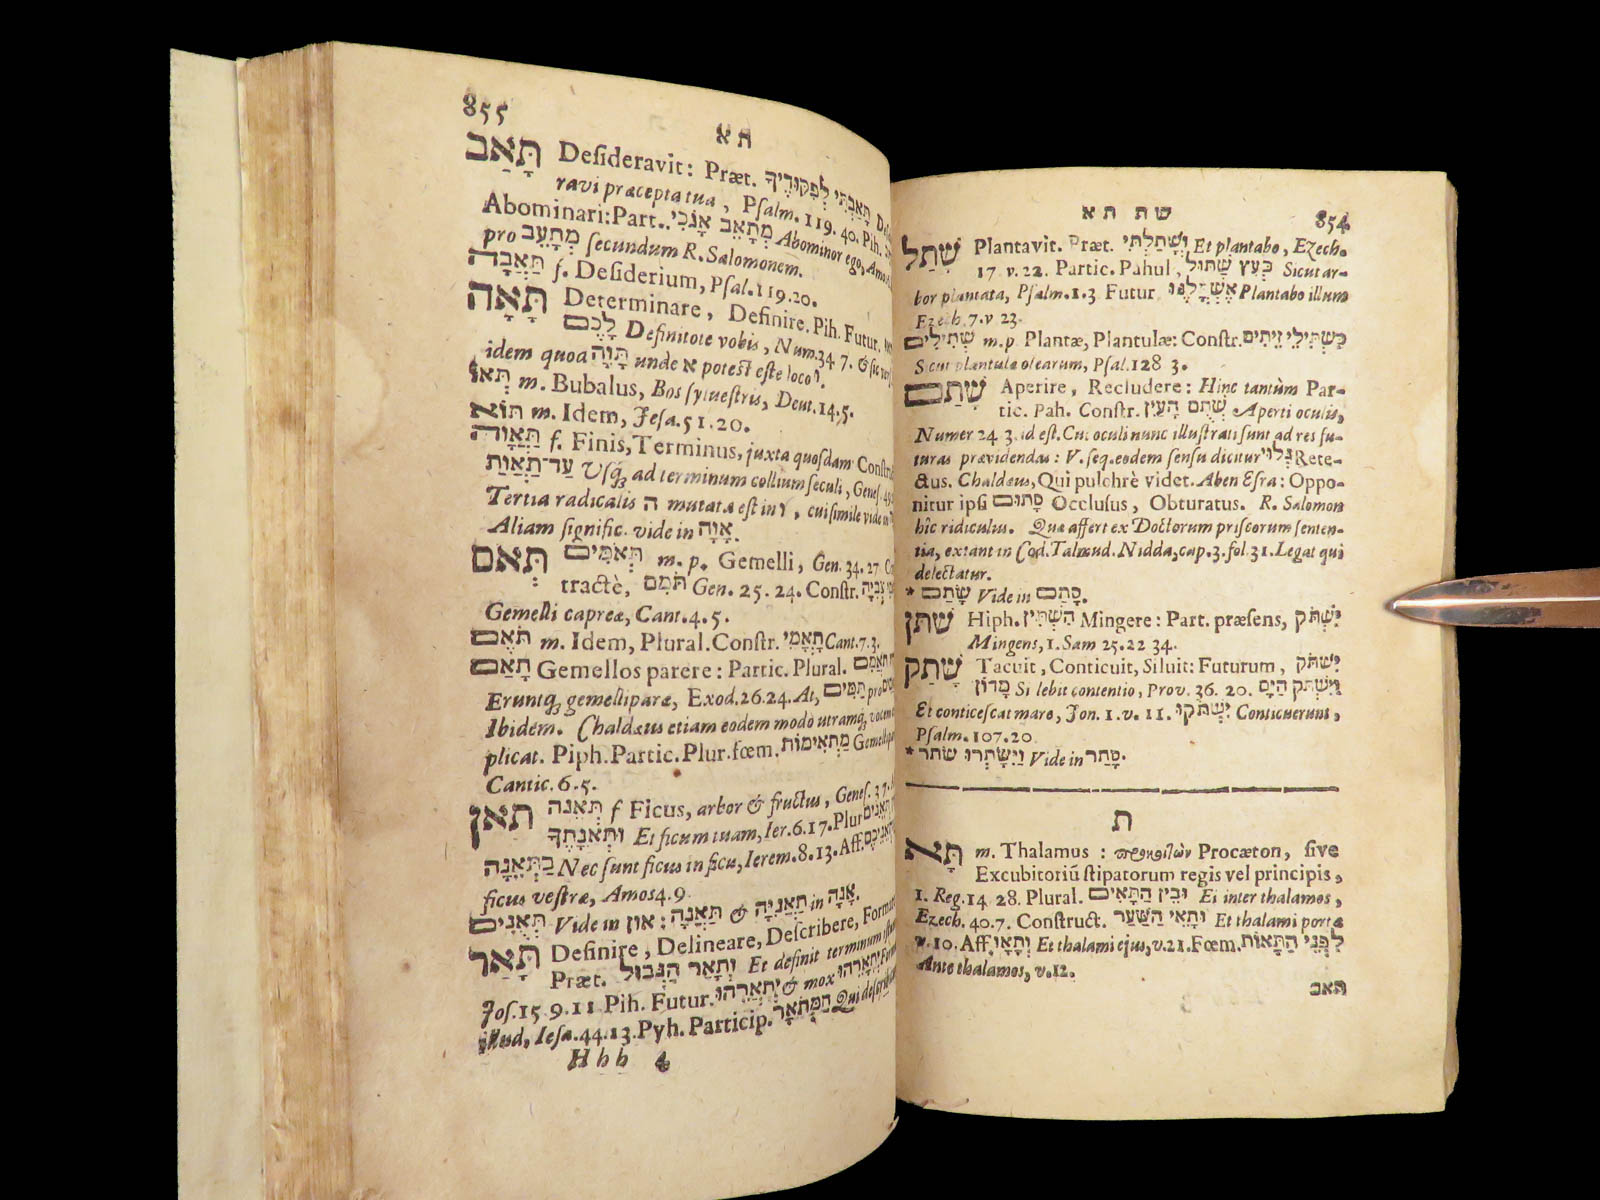 שת תא 854
שָׁתַל Plantavit. Præt. וְשָׁתַלְתִּי Et plantabo, Ezech.
17 v.22. Partic. Pahul, כְּעֵץ שָׁתוּל Sicut ar-
bor plantata, Psalm.1.3 Futur. Plantabo illum
Ezech.7.v 23.
שְׁתִילִים m.p. Plantæ, Plantulæ: Constr. כִּשְׁתִילֵי זֵיתִים
Sicut plantulæ olearum, Psal.128 3.
שָׁתַם Aperire, Recludere: Hinc tantùm Par-
tic. Pah. Constr. שְׁתֻם הָעַיִן Aperti oculis,
Numer 24 3. id est. Cui oculi nunc illustrati sunt ad res fu-
turas prævidendas: V. seq. eodem sensu dicitur גְלוּי Rete-
ctus. Chaldæus, Qui pulchrè videt. Aben Esra: Oppo-
nitur ipsi סָתוּם Occlusus, Obturatus. R. Salomon
hîc ridiculus. Quæ affert ex Doctorum priscorum senten-
tia, extant in Cod. Talmud. Nidda, cap.3. fol.31. Legat qui
delectatur.
* שָׂתַם Vide in סָתַם.
שָׁתַן Hiph. הִשְׁתִּין Mingere: Part. præsens,
Mingens, 1. Sam 25.22 34.
שָׁתַק Tacuit, Conticuit, Siluit: Futurum, יִשְׁתֹּק
מָדוֹן Silebit contentio, Prov. 36. 20. וְיִשְׁתֹּק הַיָּם
Et conticescat mare, Jon. 1. v. 11. יִשְׁתֹּקוּ Conticuerunt,
Psalm.107.20
* שׂתר וַיִּשָּׂתְרוּ Vide in סָתַר.
ת
תָּא m. Thalamus: Procæton, sive
Excubitoriũ stipatorum regis vel principis,
1. Reg.14 28. Plural. וּבֵין הַתָּאִים Et inter thalamos,
Ezech.40.7. Construct. וְתָאֵי הַשַּׁעַר Et thalami portæ
v.10. Aff. וְתָאָו Et thalami ejus, v.21. Fœm. לִפְנֵי הַתָּאוֹת
Ante thalamos, v.12.
תאב
855 תא
תָּאַב Desideravit: Præt. תָּאַבְתִּי לְפִקּוּדֶיךָ
ravi præcepta tua, Psalm.119.40. Pih.
Abominari: Part. מְתָאֵב אָנֹכִי Abominor ego,
pro מְתָעֵב secundum R. Salomonem.
תַּאֲבָה f. Desiderium, Psal.119.20.
תָּאָה Determinare, Definire. Pih. Futur.
לָכֶם Definitote vobis, Num.34 7. & sic
idem quod תָּוָה unde א potest esse loco ו.
תְּאוֹ m. Bubalus, Bos sylvestris, Deut.14.5.
תּוֹא m. Idem, Jesa.51.20.
תַּאֲוָה f. Finis, Terminus, juxta quosdam
עַד־תַּאֲוַת Usq; ad terminum collium seculi, Genes.
Tertia radicalis ה mutata est in ו, cui simile vide in
Aliam signific. vide in אָוָה.
תָּאַם תְּאֹמִים m.p. Gemelli, Gen. 34. 27.
tractè, תֹמִם Gen. 25. 24. Constr.
Gemelli capreæ, Cant.4.5.
תֹּאַם m. Idem, Plural. Constr. תָּאֳמֵי Cant.7.3.
תָּאַם Gemellos parere: Partic. Plural.
Eruntq; gemelliparæ, Exod.26.24. At, תַּמִּים pro
Ibidem. Chaldæus etiam eodem modò utramq;
plicat. Piph. Partic. Plur. fœm. מַתְאִימוֹת
Cantic.6.5.
תאן תְּאֵנָה f Ficus, arbor & fructus, Genes.37.
וּתְאֵנָתֶךָ Et ficum tuam, Ier.6.17. Plur
בַּתְּאֵנָה Nec sunt ficus in ficu, Ierem.8.13. Aff.
ficus vestræ, Amos 4.9.
תְּאֻנִים Vide in און: תַּאֲנָה & תַּאֲנִיָּה in אָנָה.
תָּאַר Definire, Delineare, Describere,
Præt. וְתָאַר הַגְּבוּל Et definit terminum
Jos.15 9.11 Pih. Futur. יְתָאֲרֵהוּ & mox
illud, Iesa.44.13. Pyh. Particip. הַמְּתֹאָר
Hhh 4